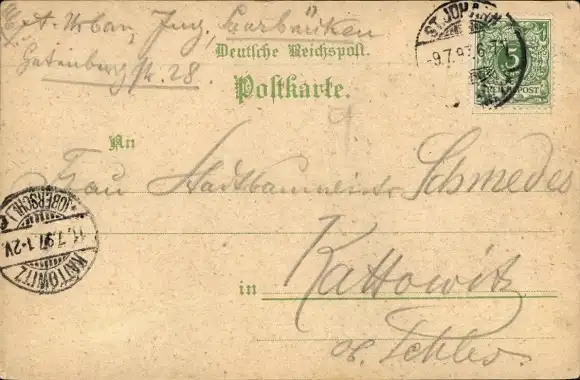 A. Urban, Ing., Saarbrüken
Gutenberg str. 28.
Deutsche Reichspost.
Postkarte.
ST. JOHANN
9.7.97. 6-7
5
POST
An
Frau Stadtbaumeister Schmedes
KATTOWITZ
(OBERSCHL.)
11.7.97. 1-2V.
in
Kattowitz
O. Schles.